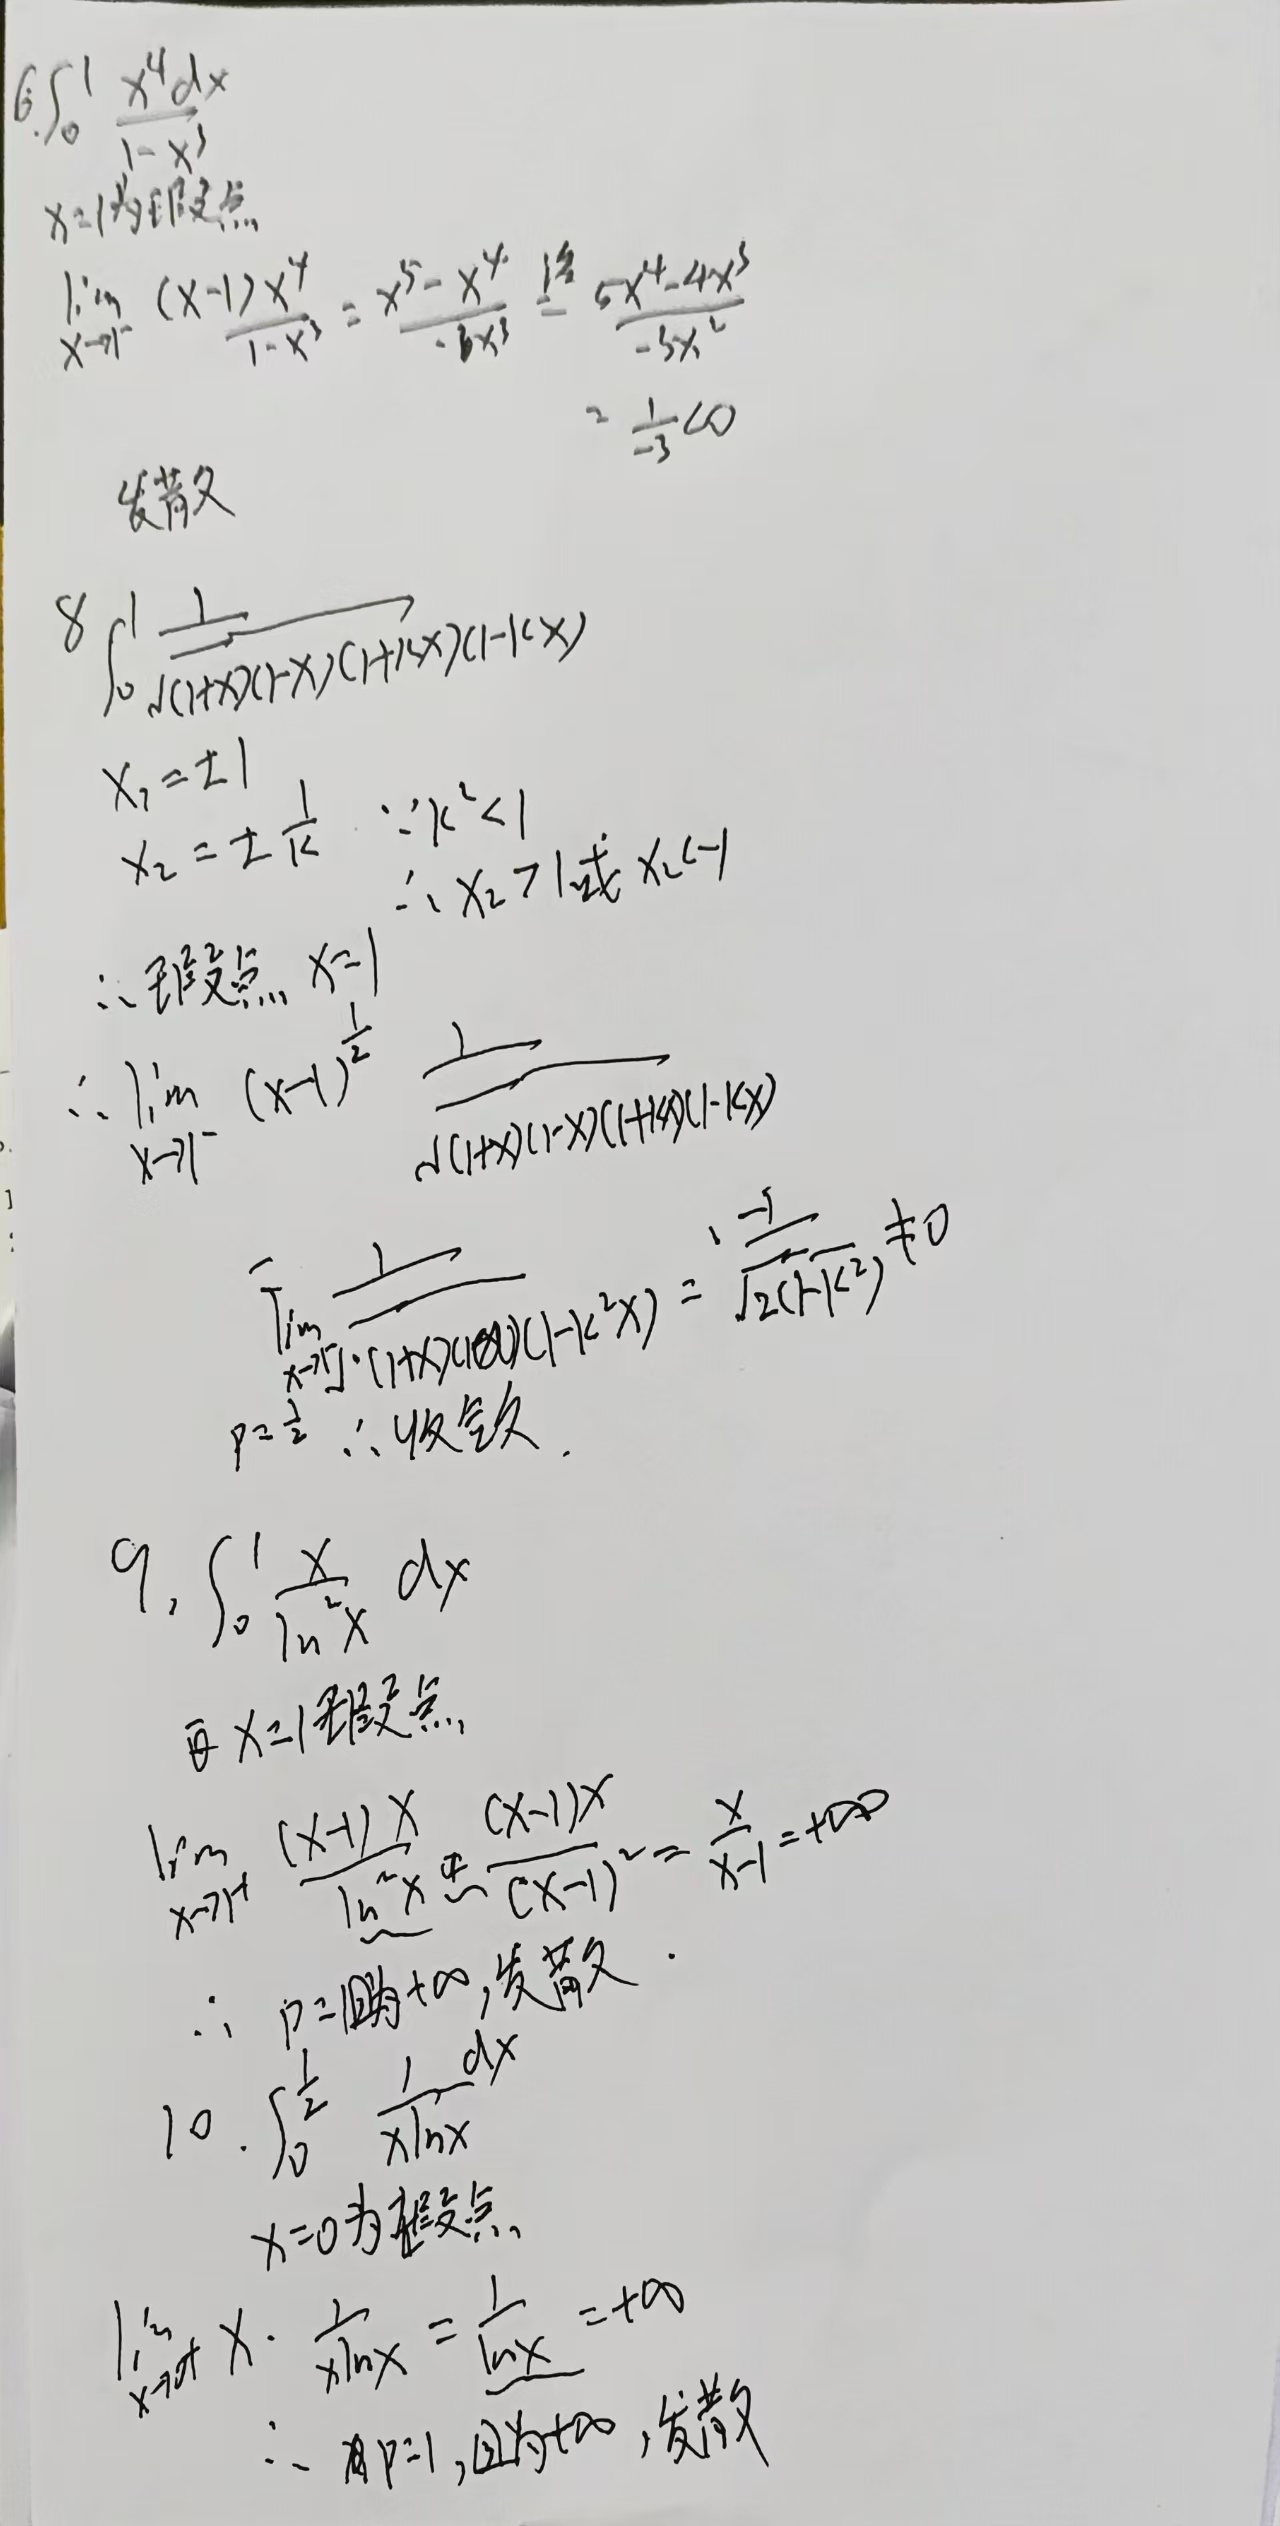 6. ∫₀¹ x⁴dx / 1-x³
x=1为瑕点
lim x→1⁻ (x-1)x⁴ / 1-x³ = x⁵-x⁴ / -3x³ 洛= 5x⁴-4x³ / -3x²
= 1/-3 <0
发散
8 ∫₀¹ 1 / √(1+x)(1-x)(1+kx)(1-kx)
x₁=±1
x₂=±1/k ∵k²<1
∴x₂>1或x₂<-1
∴瑕点 x=1
∴ lim x→1⁻ (x-1)^½ 1 / √(1+x)(1-x)(1+kx)(1-kx)
lim x→1⁻ 1 / √(1+x)(1-k²x) = -1 / √2(1-k²) ≠0
p=½ ∴收敛.
9, ∫₀¹ x / ln²x dx
x=1瑕点
lim x→1⁺ (x-1)x / ln²x = (x-1)x / (x-1)² = x / x-1 =+∞
∴ p=1因为+∞,发散.
10. ∫₀^½ 1 / xlnx dx
x=0为瑕点
lim x→0⁺ x· 1 / xlnx = 1 / lnx =+∞
∴ p=1,因为+∞,发散